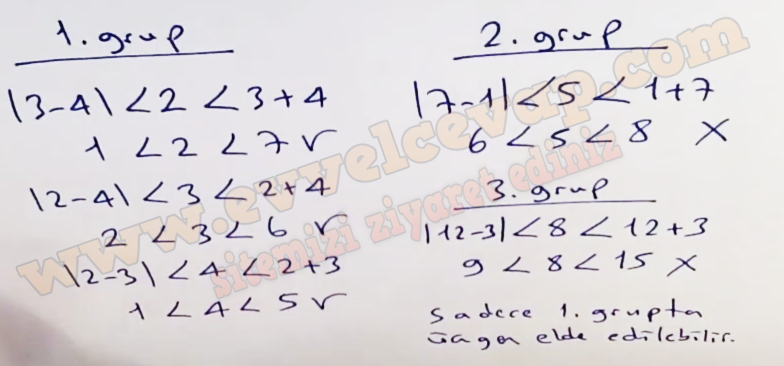 1. grup
|3-4| < 2 < 3+4
1 < 2 < 7 ✓
|2-4| < 3 < 2+4
2 < 3 < 6 ✓
|2-3| < 4 < 2+3
1 < 4 < 5 ✓
2. grup
|7-1| < 5 < 1+7
6 < 5 < 8 X
3. grup
|12-3| < 8 < 12+3
9 < 8 < 15 X
Sadece 1. grupta
üçgen elde edilebilir.
www.evvelcevap.com
sitemizi ziyaret ediniz